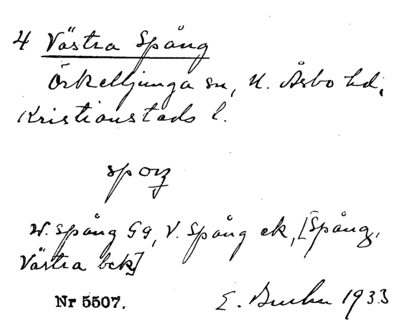 4 Västra Spång
Örkelljunga sn, N. Åsbo hd,
Kristianstads l.
spoŋ
W. spång Gg, V. Spång ek, [Spång,
Västra bck]
Nr 5507.
E. 1933